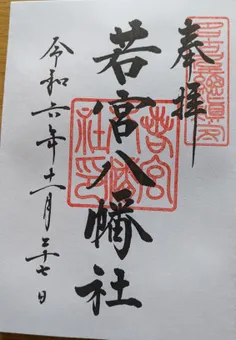 奉拝
若宮八幡社
若宮八幡社印
令和六年十一月二十七日